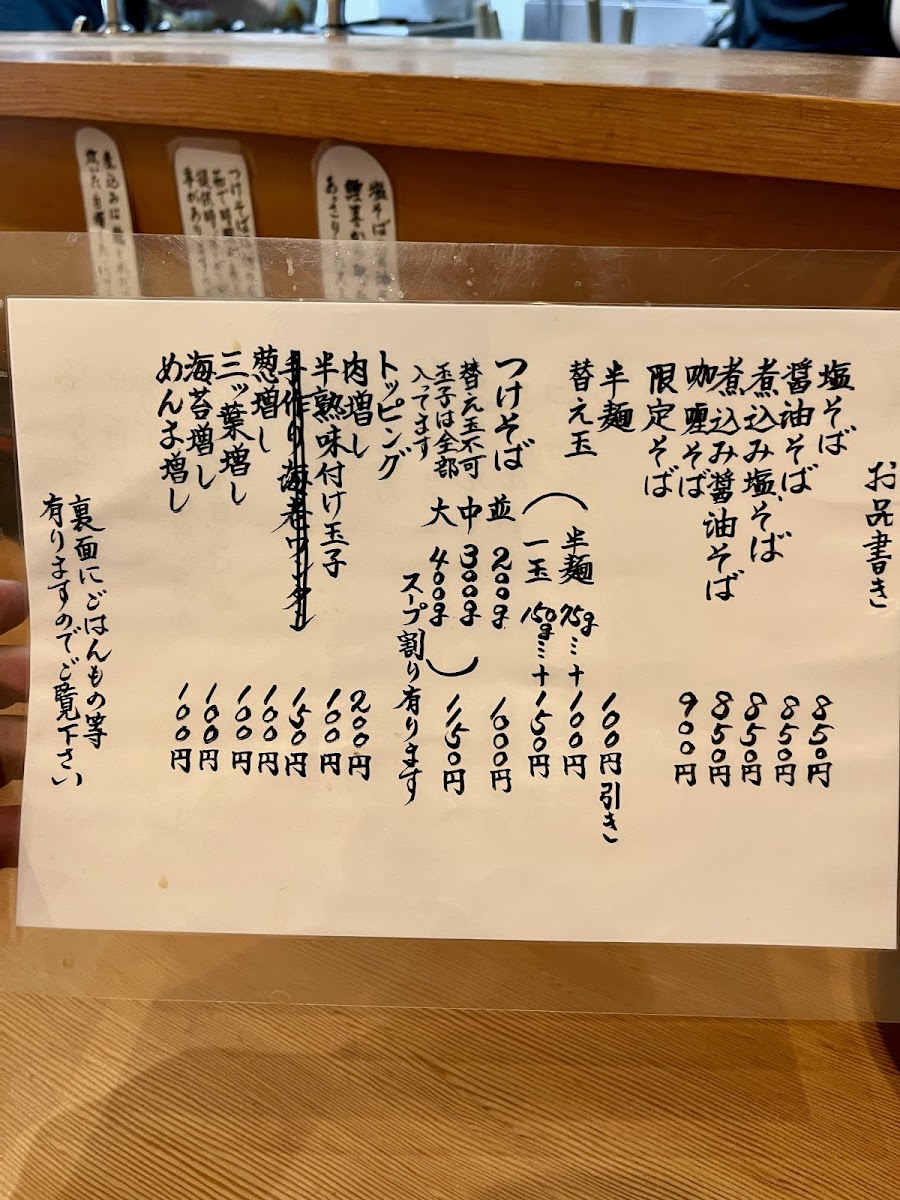 お品書き
塩そば 850円
醤油そば 850円
煮込み塩そば 850円
煮込み醤油そば 850円
咖喱そば 900円
限定そば
半麺 100円引き
替え玉 (半麺 75g…+100円
一玉 150g…+150円
つけそば 並 200g 1000円
替え玉不可 中 300g
玉子は全部 大 400g) 1150円
入ってます
スープ割り有ります
トッピング
肉増し 200円
半熟味付け玉子 100円
手作り海老ワンタン 150円
葱増し 100円
三ッ葉増し 100円
海苔増し 100円
めんま増し 100円
裏面にごはんもの等
有りますのでご覧下さい
塩そば
あっさり
つけそば
事があります
煮込みは